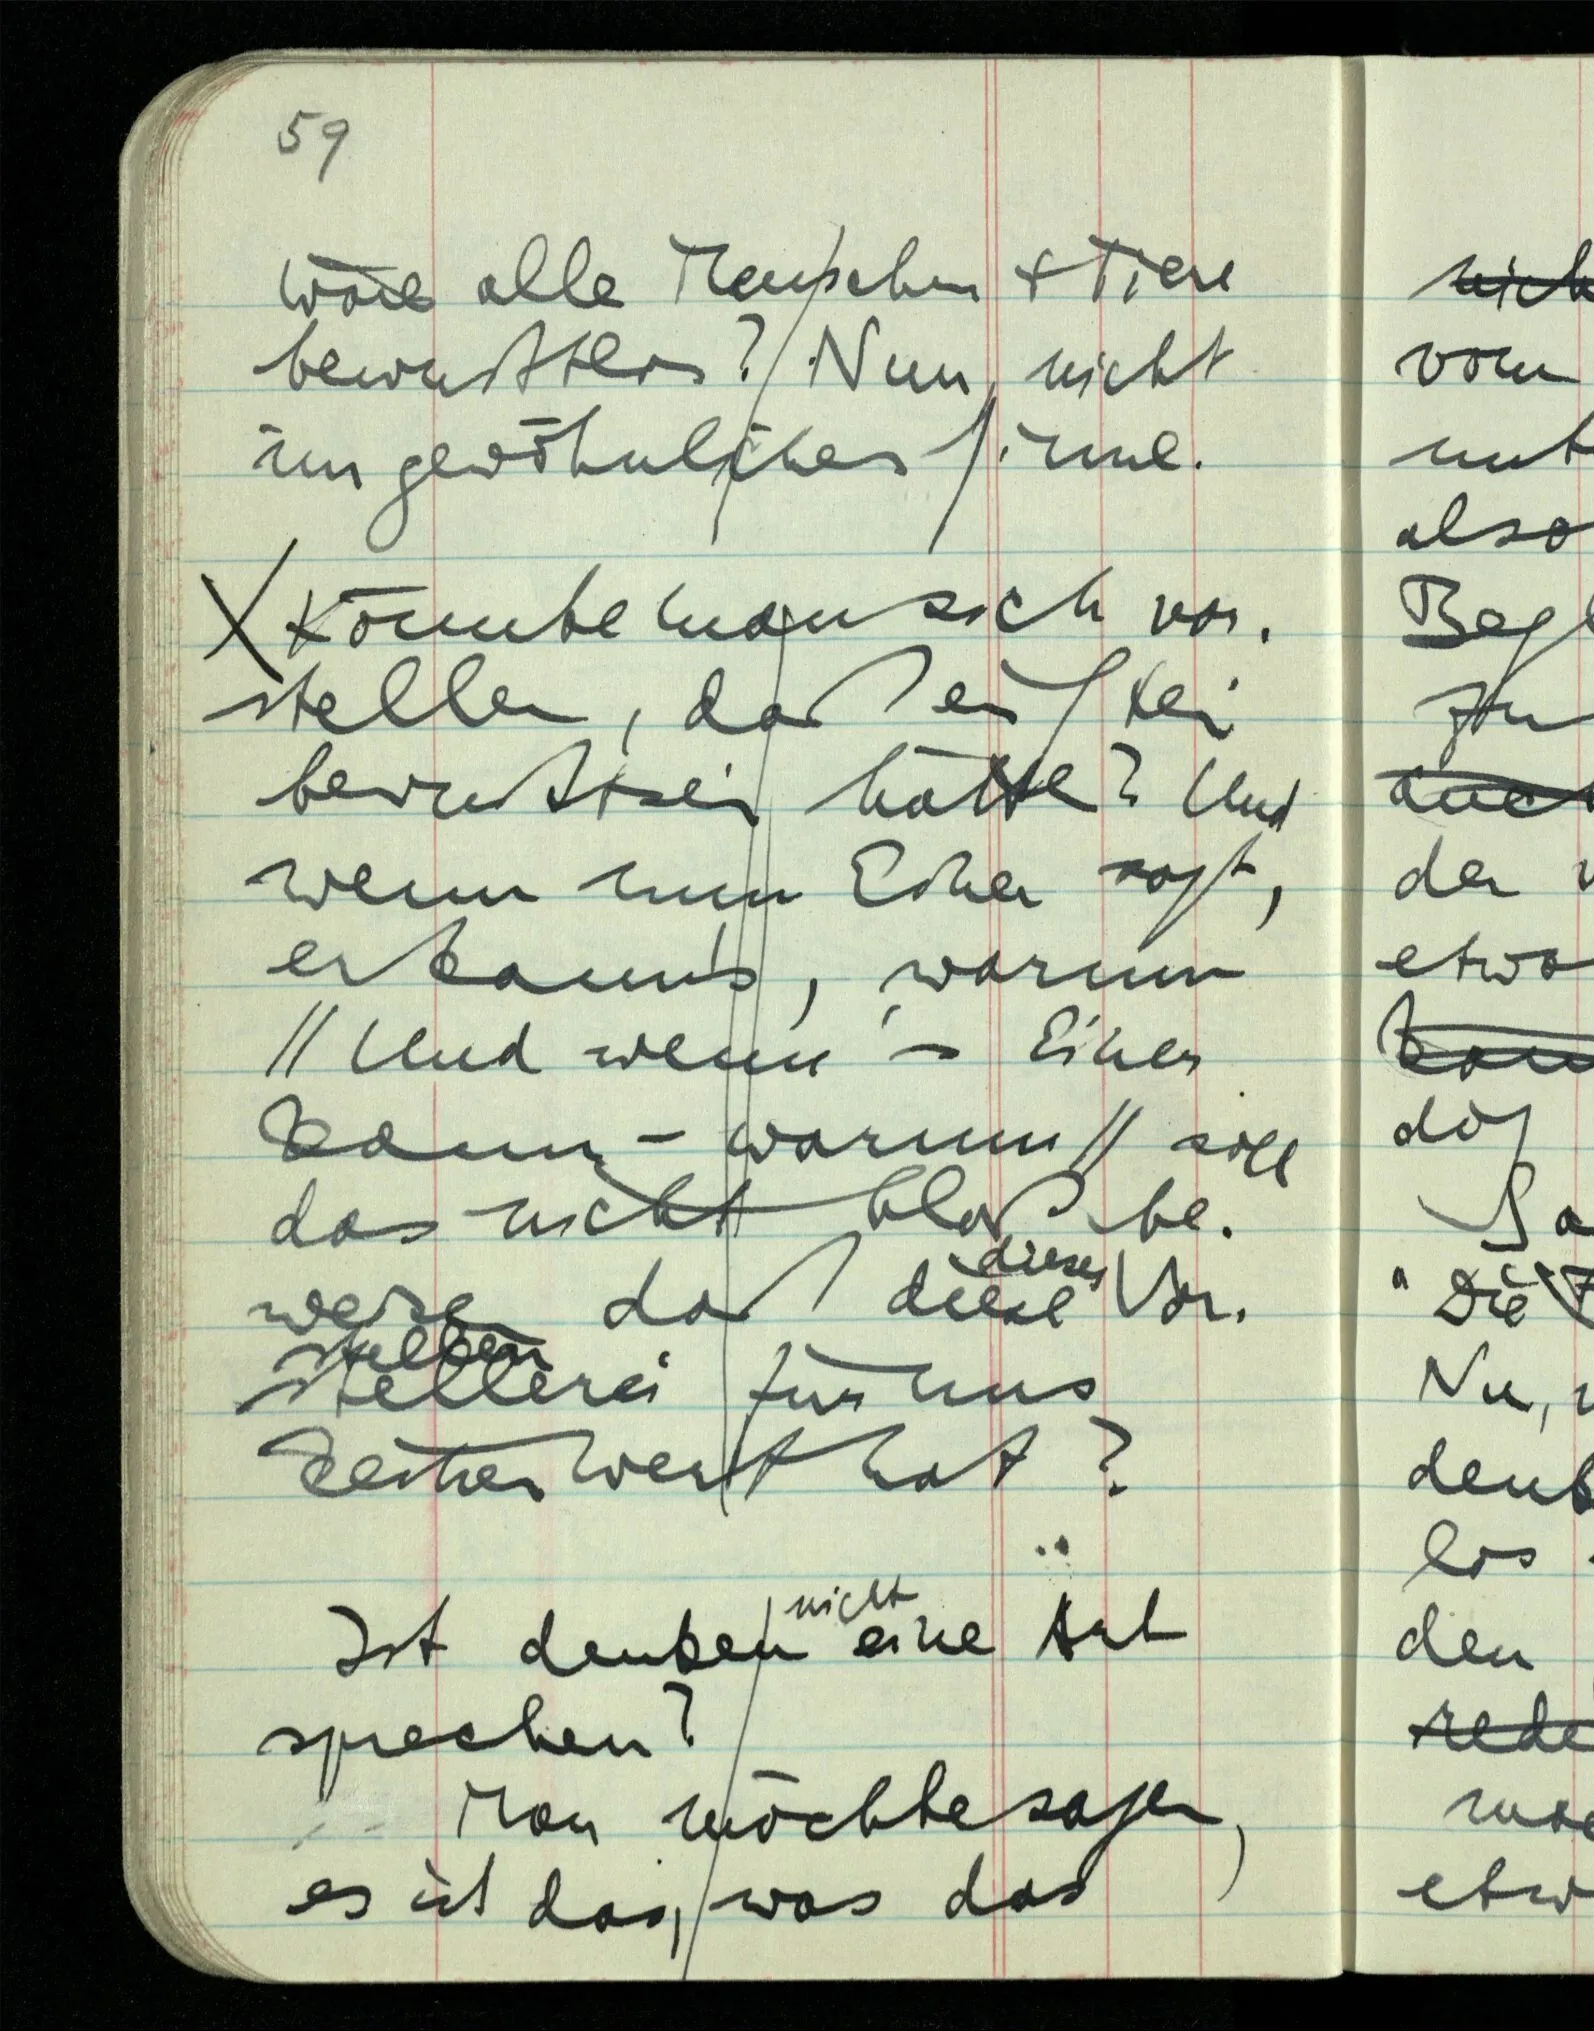 59
wäre alle Menschen + Tiere
bewußtlos? Nun, nicht
im gewöhnlichen Sinne.
Könnte man sich vor-
stellen, daß ein Stein
bewußtsein hätte? Und
wenn nun Einer sagt,
er kann's, warum
// Und wenn's Einer
kann – warum // soll
das nicht bloß be-
weisen daß diese dieses Vor-
stellerei stellen für uns
keinen Wert hat?
Ist denken nicht eine Art
sprechen?
Man möchte sagen,
es ist das, was das
nich
vom
mit
also
Begl
zu
auch
der
etwa
kan
daß
Sa
"Die
Nu,
denk
los
den
rede
etw